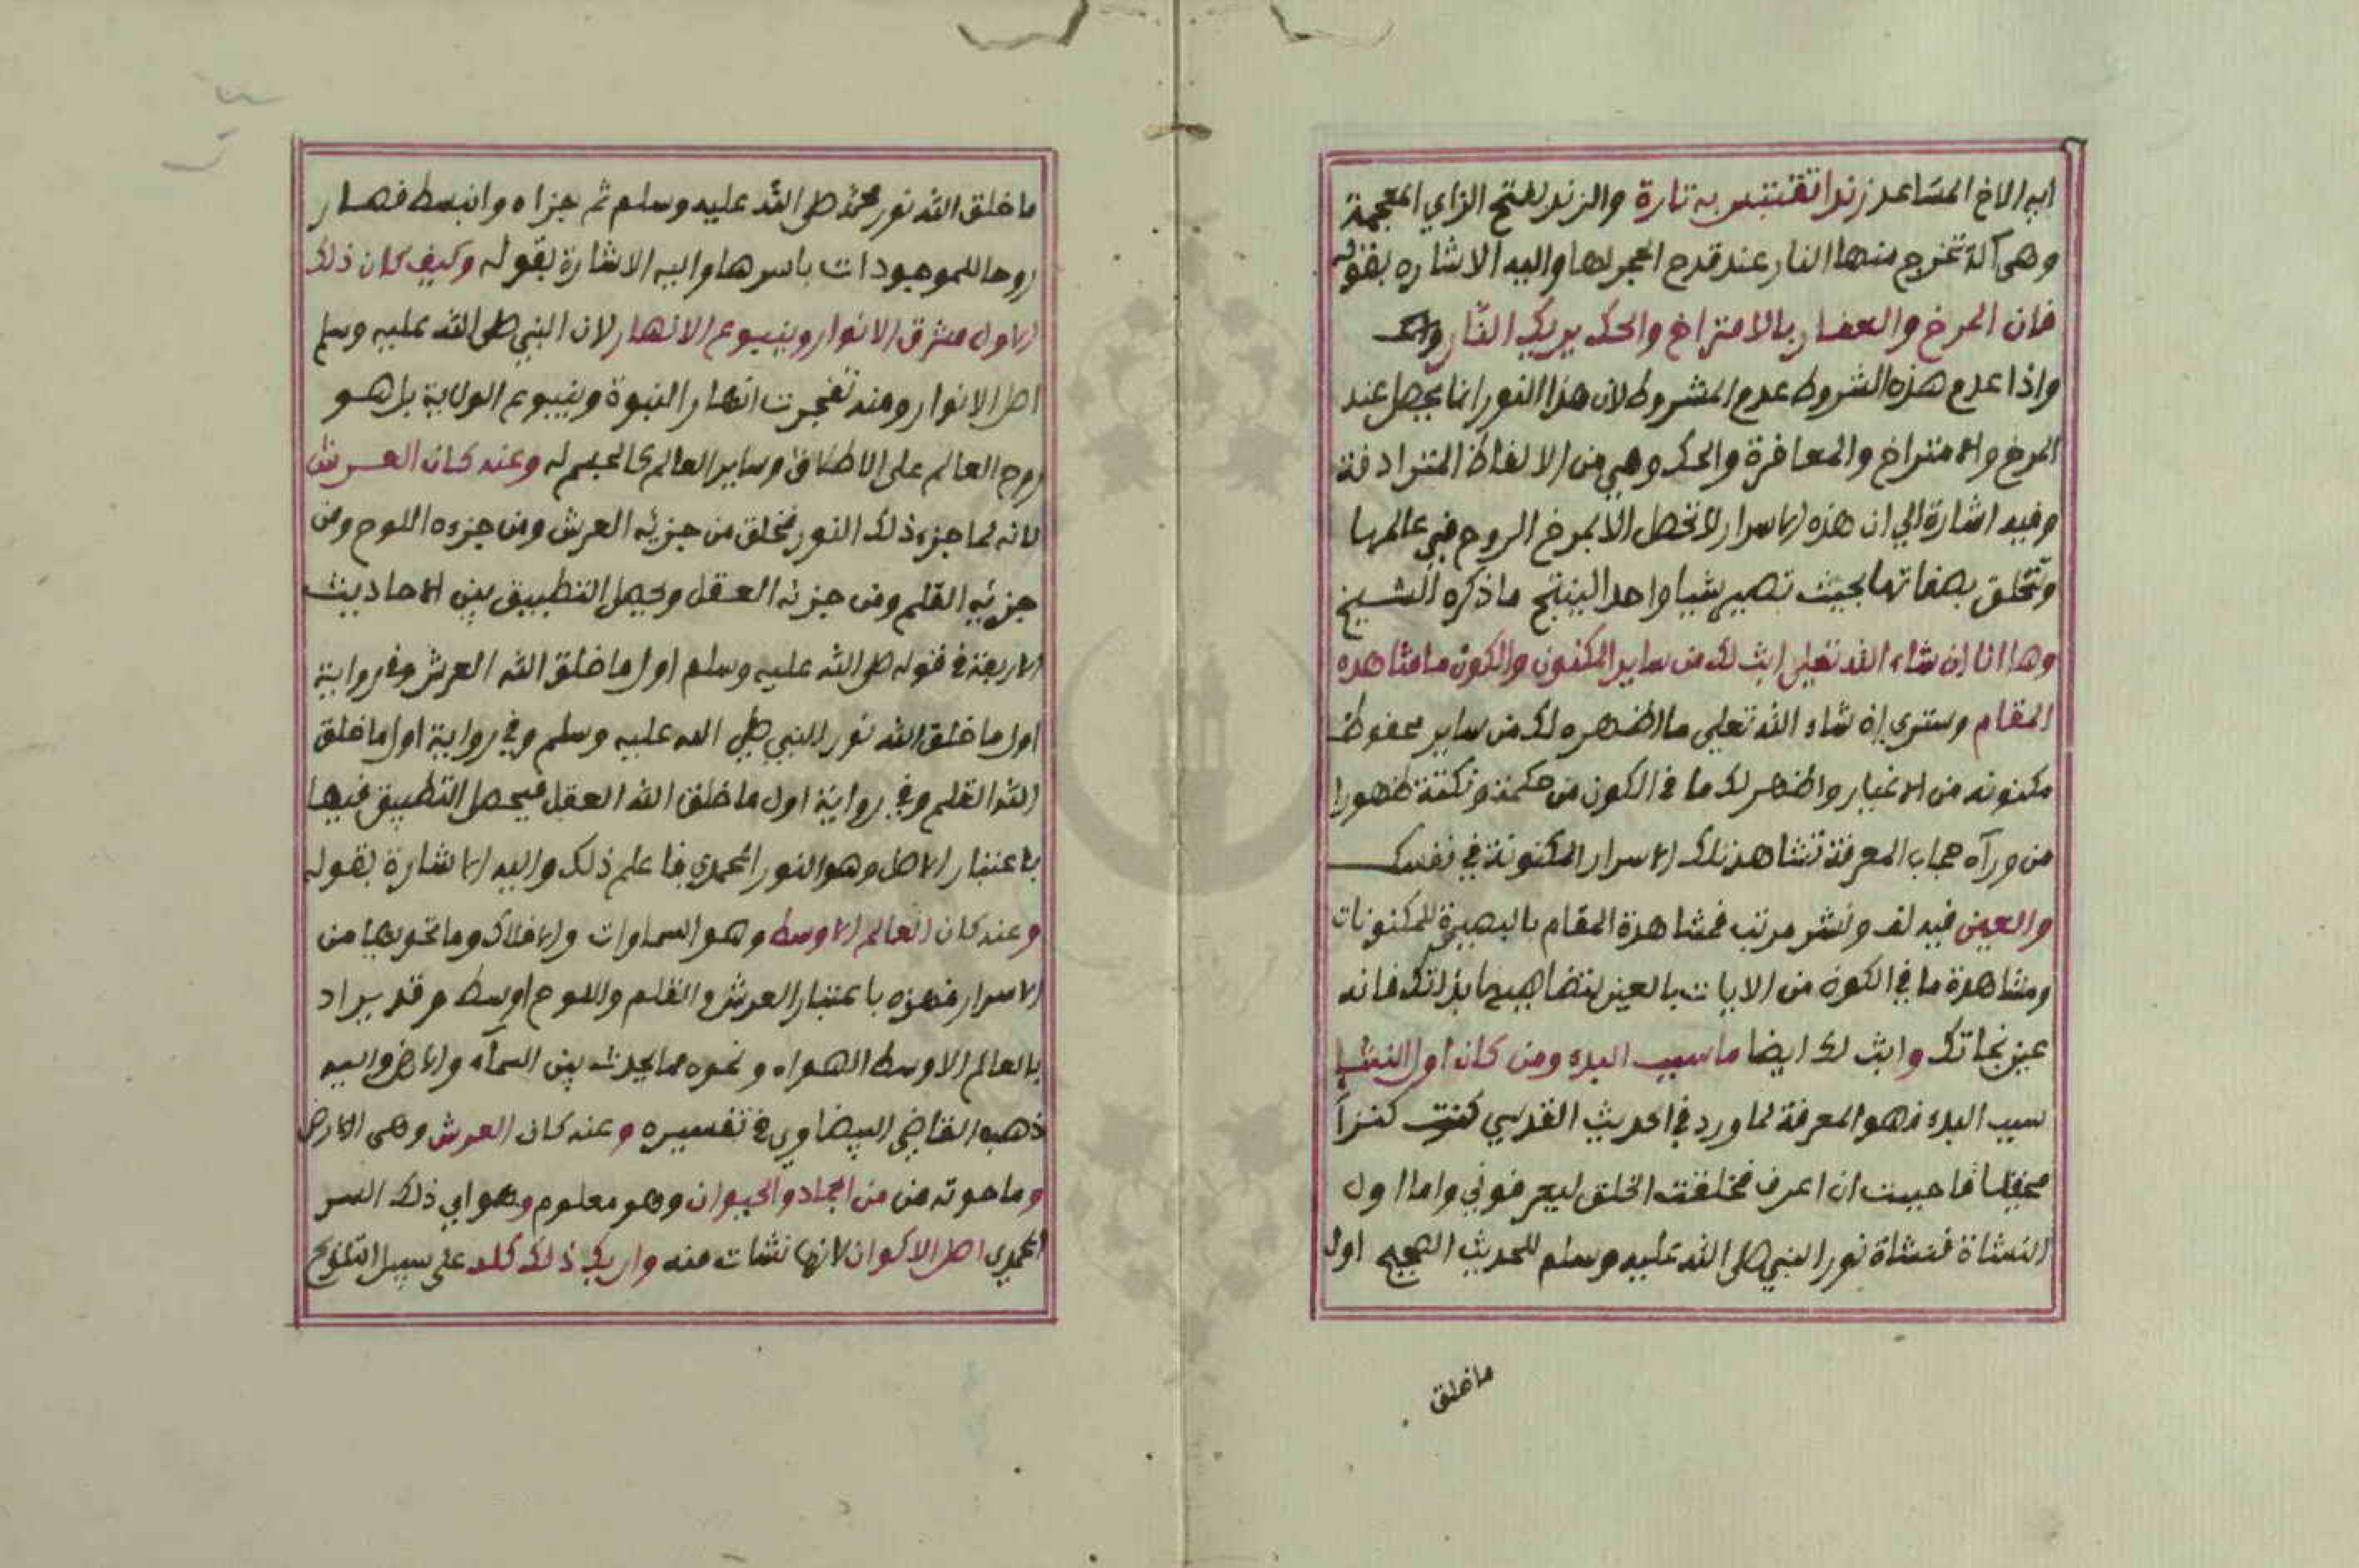 ايه الاخ المساعد زندا تقتبس به تارة والزند بفتح الزاي المعجمة
وهي آلة تخرج منها النار عند قدح الحجر لها واليه الاشاره بقوله
فان المرخ والعفار بالامتراخ والحك يريك النار
واذا عدم هذه الشروط عدم المشروط لان هذا النور انما يحصل عند
المرخ والامتراخ والمعافرة والحك وهي من الالفاظ المترادفة
وفيه اشارة الي ان هذه الاسرار لا تحصل الا بمرخ الروح في عالمها
وتخلق بصفاتها بحيث تصير شيا واحدا لينتج ما ذكره الشيخ
وها انا ان شاء الله تعلى ابث لك من ساير المكنون والكون ما مشاهده
المقام وستري ان شاء الله تعلى ما اظهره لك من ساير محفوظ
مكنونه من الاغيار واظهر لك ما في الكون من حكمة ونكتة ظهورا
من ورآء حجاب المعرفة تشاهد تلك الاسرار المكنونة في نفسك
والعين فيه لف ونشر مرتب فمشاهدة المقام بالبصيرة للمكنونات
ومشاهدة ما في الكون من الايات بالعين تضاهيهما بذلتك فانه
عين نجاتك وابث لك ايضا ما سبب البدء ومن كان اول النشا
سبب البدء فهو المعرفة لما ورد في الحديث القدسي كنت كنزا
مخفيا فاحببت ان اعرف فخلقت الخلق ليعرفوني واما اول
النشاة فنشاة نور النبي صلى الله عليه وسلم للحديث الصحيح اول
ما خلق
ما خلق الله نور محمد صلى الله عليه وسلم ثم جزاه وانبسط فصار
روحا للموجودات باسرها واليه الاشارة بقوله وكيف كان ذلك
الاول مشرق الانوار وينبوع الانهار لان النبي صلى الله عليه وسلم
اصل الانوار ومنه تفجرت انهار النبوة وينبوع الولاية بل هو
روح العالم على الاطلاق وساير العالم كالجسم له وعنه كان العرش
لانه لما جزء ذلك النور فخلق من جزئه العرش ومن جزءه اللوح ومن
جزئيه القلم ومن جزئه العقل ويحصل التطبيق بين الاحاديث
الاربعة في قوله صلى الله عليه وسلم اول ما خلق الله العرش وفي رواية
اول ما خلق الله نور النبي صلى الله عليه وسلم وفي رواية اول ما خلق
الله القلم وفي رواية اول ما خلق الله العقل فيحصل التطبيق فيها
باعتبار الاصل وهو النور المحمدي فاعلم ذلك واليه الاشارة بقوله
وعنه كان العالم الاوسط وهو السماوات والافلاك وما تحويها من
الاسرار فهزه باعتبار العرش والقلم واللوح اوسط وقد يراد
بالعالم الاوسط الهواء ونحوه مما يحدث بين السمآء والارض واليه
ذهب القاضي البيضاوي في تفسيره وعنه كان العرش وهي الارض
وما حوته من من الجماد والحيوان وهو معلوم وهو اي ذلك السر
المحمدي اصل الاكوان لانها نشات منه واريك ذلك كله على سبيل التلويح